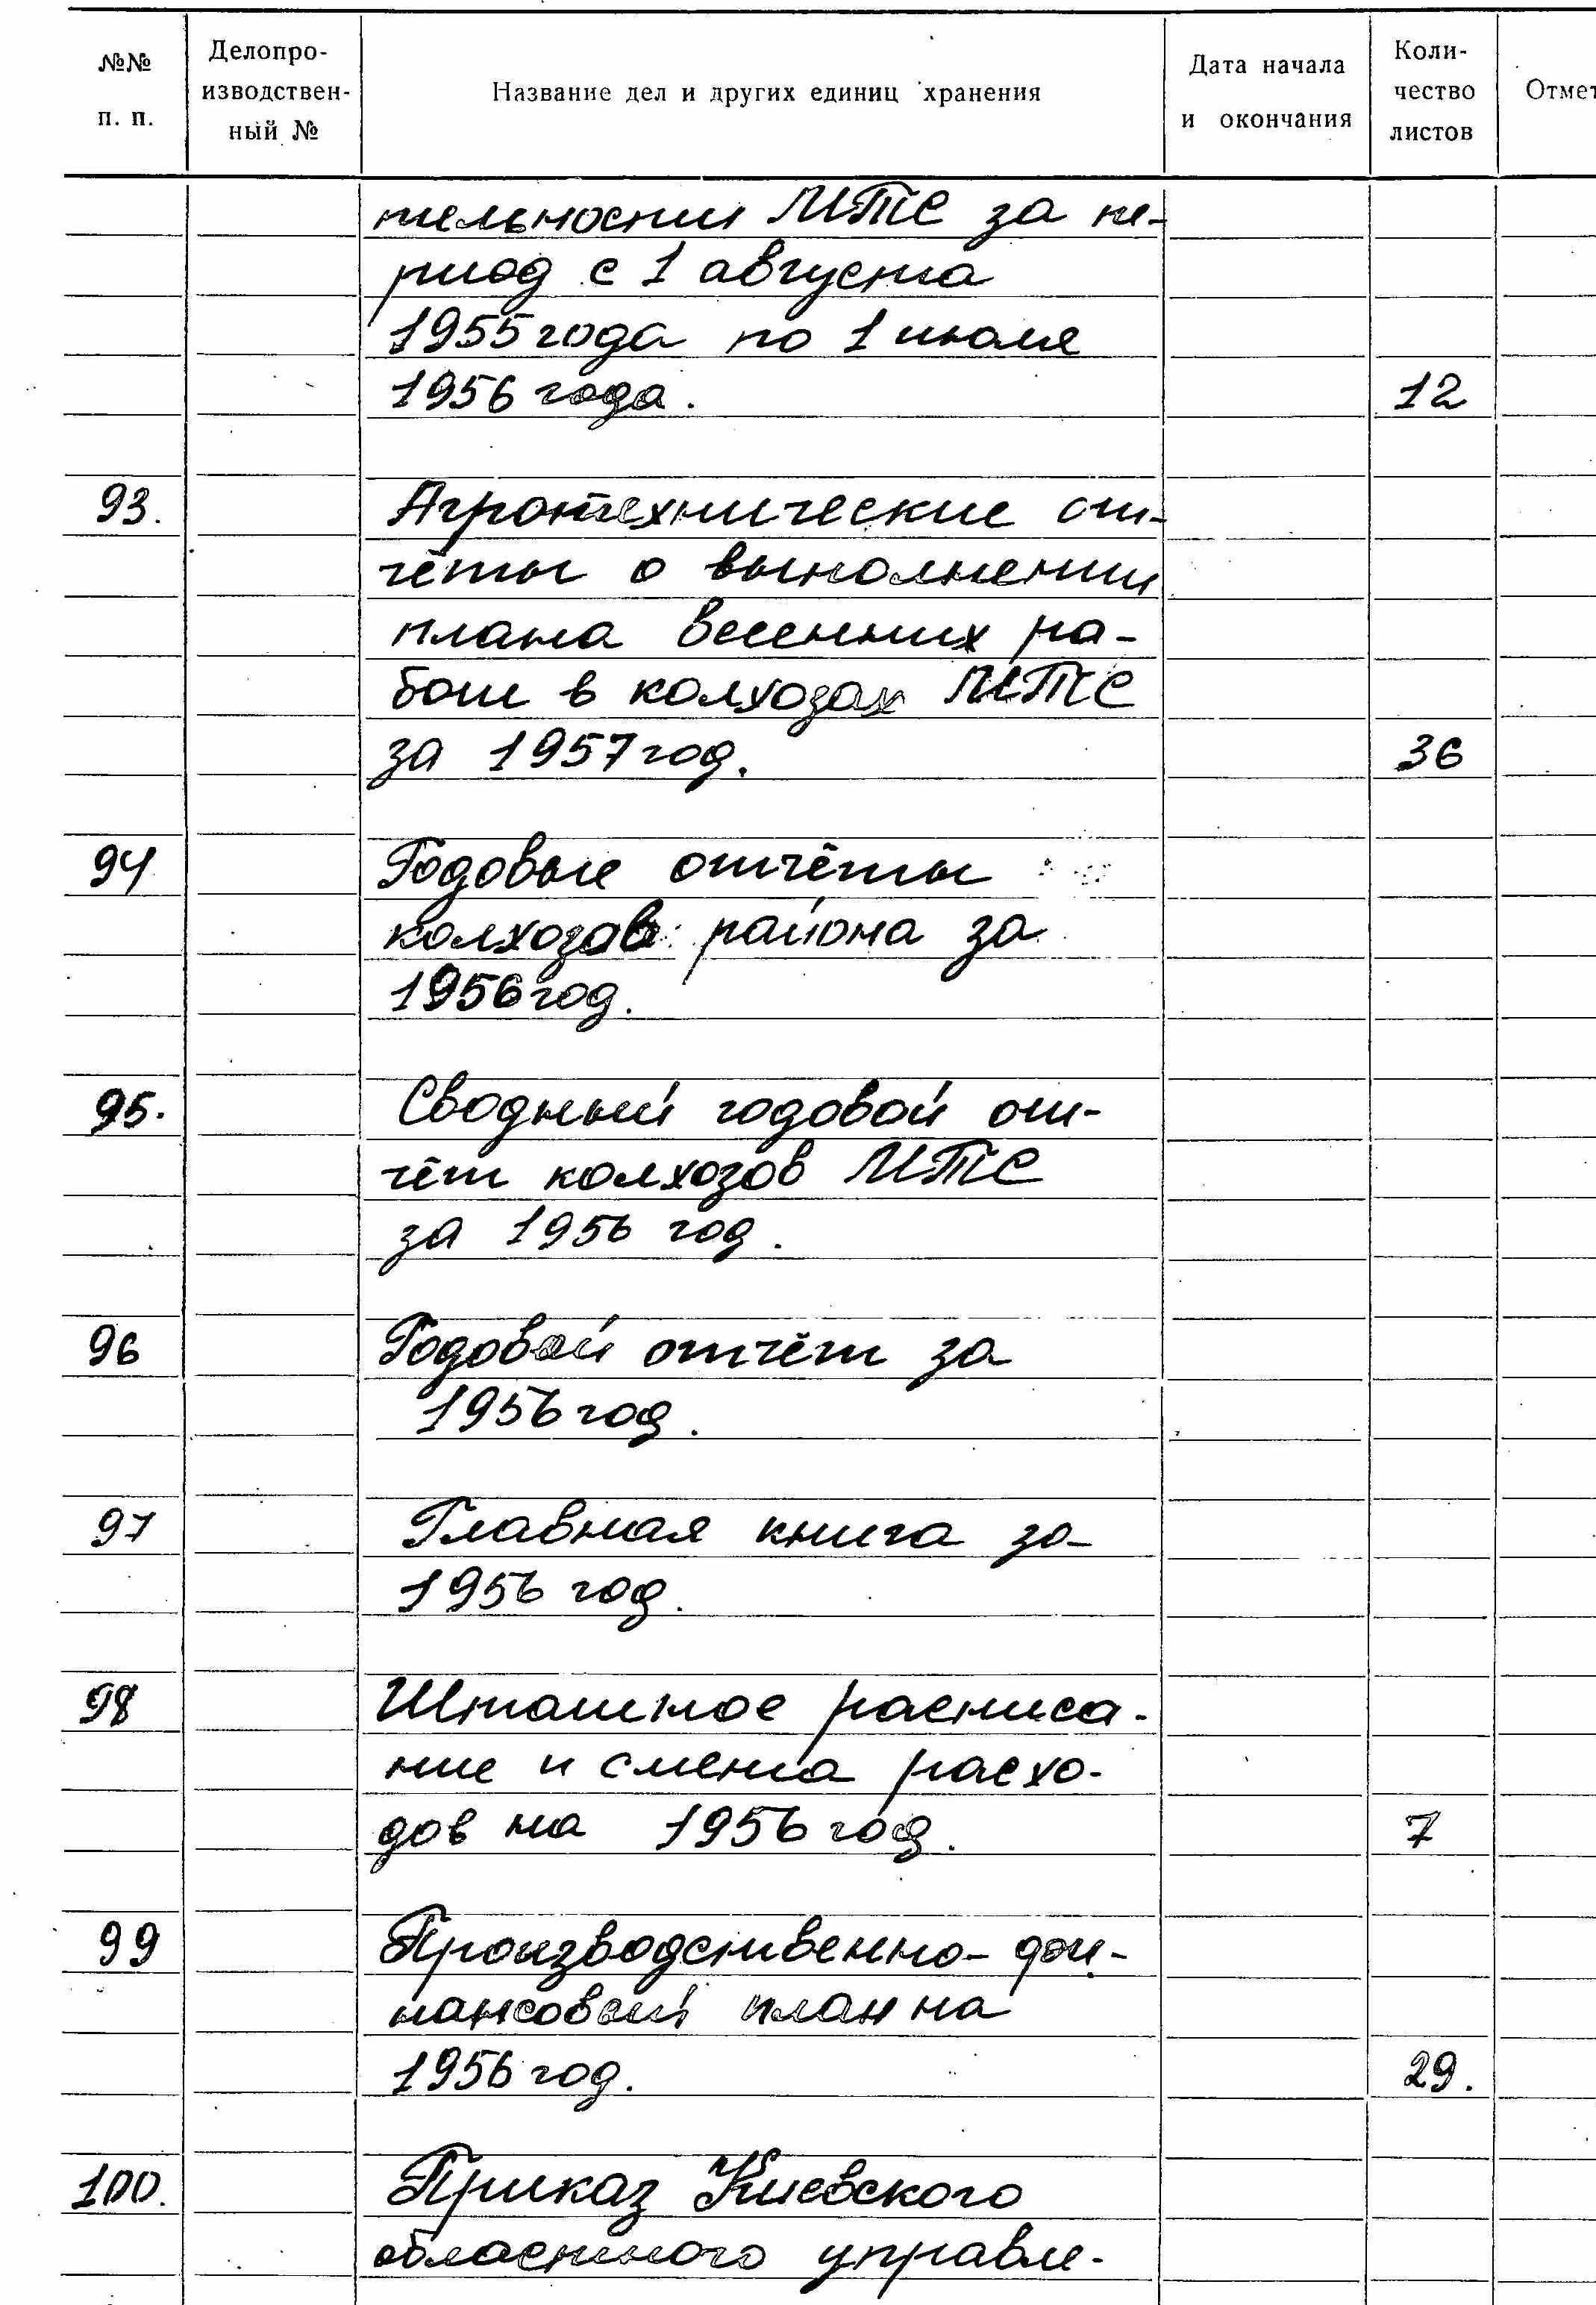 №№ п. п. Делопро-изводствен-ный № Название дел и других единиц хранения Дата начала и окончания Коли-чество листов Отмет
тельности МТС за пе-
риод с 1 августа
1955 года по 1 июля
1956 года. 12
93. Агротехнические от-
чёты о выполнении
плана весенних ра-
бот в колхозах МТС
за 1957 год. 36
94 Годовые отчёты
колхозов района за
1956 год.
95. Сводный годовой от-
чёт колхозов МТС
за 1956 год.
96 Годовой отчёт за
1956 год.
97 Главная книга за
1956 год.
98 Штатное расписа-
ние и смета расхо-
дов на 1956 год. 7
99 Производственно-фи-
нансовый план на
1956 год. 29.
100. Приказ Киевского
областного управле-